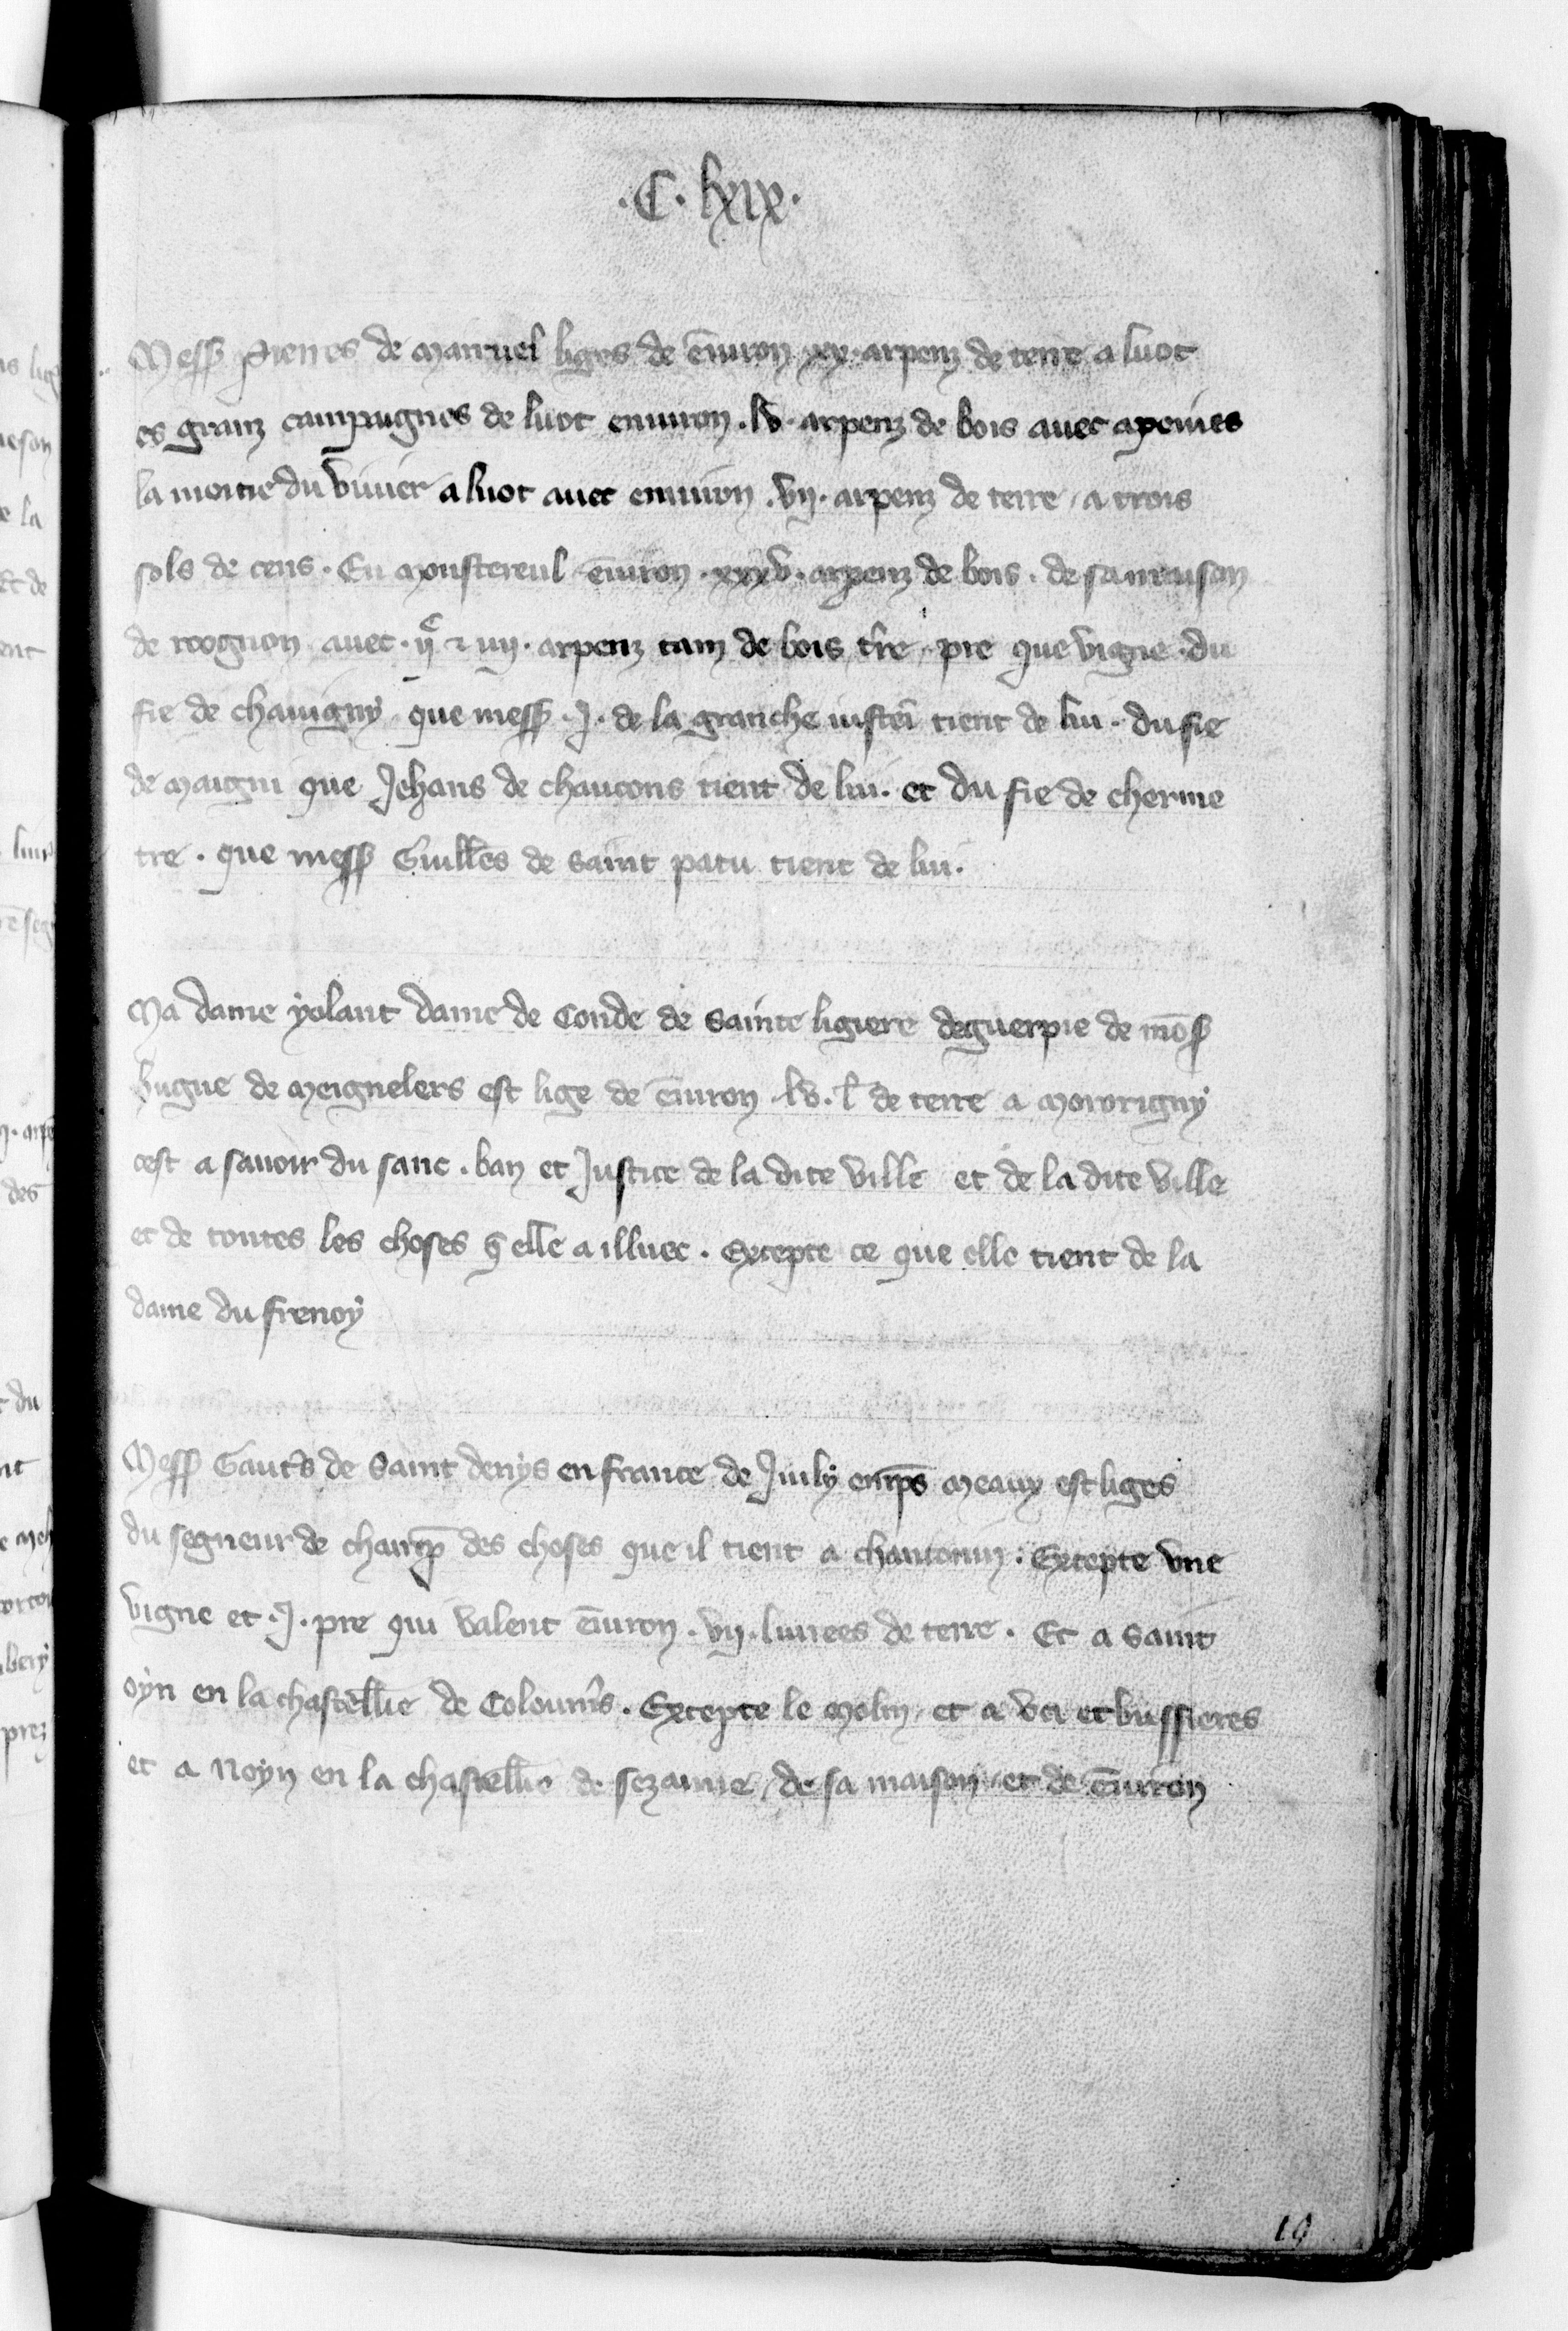 .C. lxix.
Mess Pierres de Marruel liges de ēuiron .xx. arpenz de terre a luot
es granz campaignes de luot enuiron .lv. arpenz de bois auec apeines
la moitie du viuier a luot auec enuiron .vij. arpenz de terre a trois
sols de cens . En Monstereul ēuiron .xxxv. arpenz de bois . de sa maison
de roognon auec .ijc et iiij. arpenz tam de bois tr̄e pre que vigne . du
fie de chauigny que mess .J. de la granche tient de lui . du fie
de Maigni que Jehans de chaucons tient de lui . et du fie de cherme
tre . que mess Guill̄es de Saint patu tient de lui .
Ma dame yolant dame de Conde de Sainte ligiere deguerpie de mōs
hugue de Meignelers est lige de ēuiron .lv. l̄ de terre a Morrigny
cest a sauoir du sanc . ban et Justice de la dite ville et de la dite ville
et de toutes les choses q̄ elle a illuec . Excepte ce que elle tient de la
dame du frenoy
Mess Gaut̄s de Saint denys en france de Juily emp̄s Meaux est liges
du segneur de champ̄ des choses que il tient a chantonin : Excepte vne
vigne et .J. pre qui valent ēuiron .vij. liurees de terre . Et a Saint
oyn en la chastell̄ie de Coloum̄s . Excepte le Molin et a vci et bussieres
et a Noyn en la chastell̄ie de sezanne de sa maison et de ēuiron
19